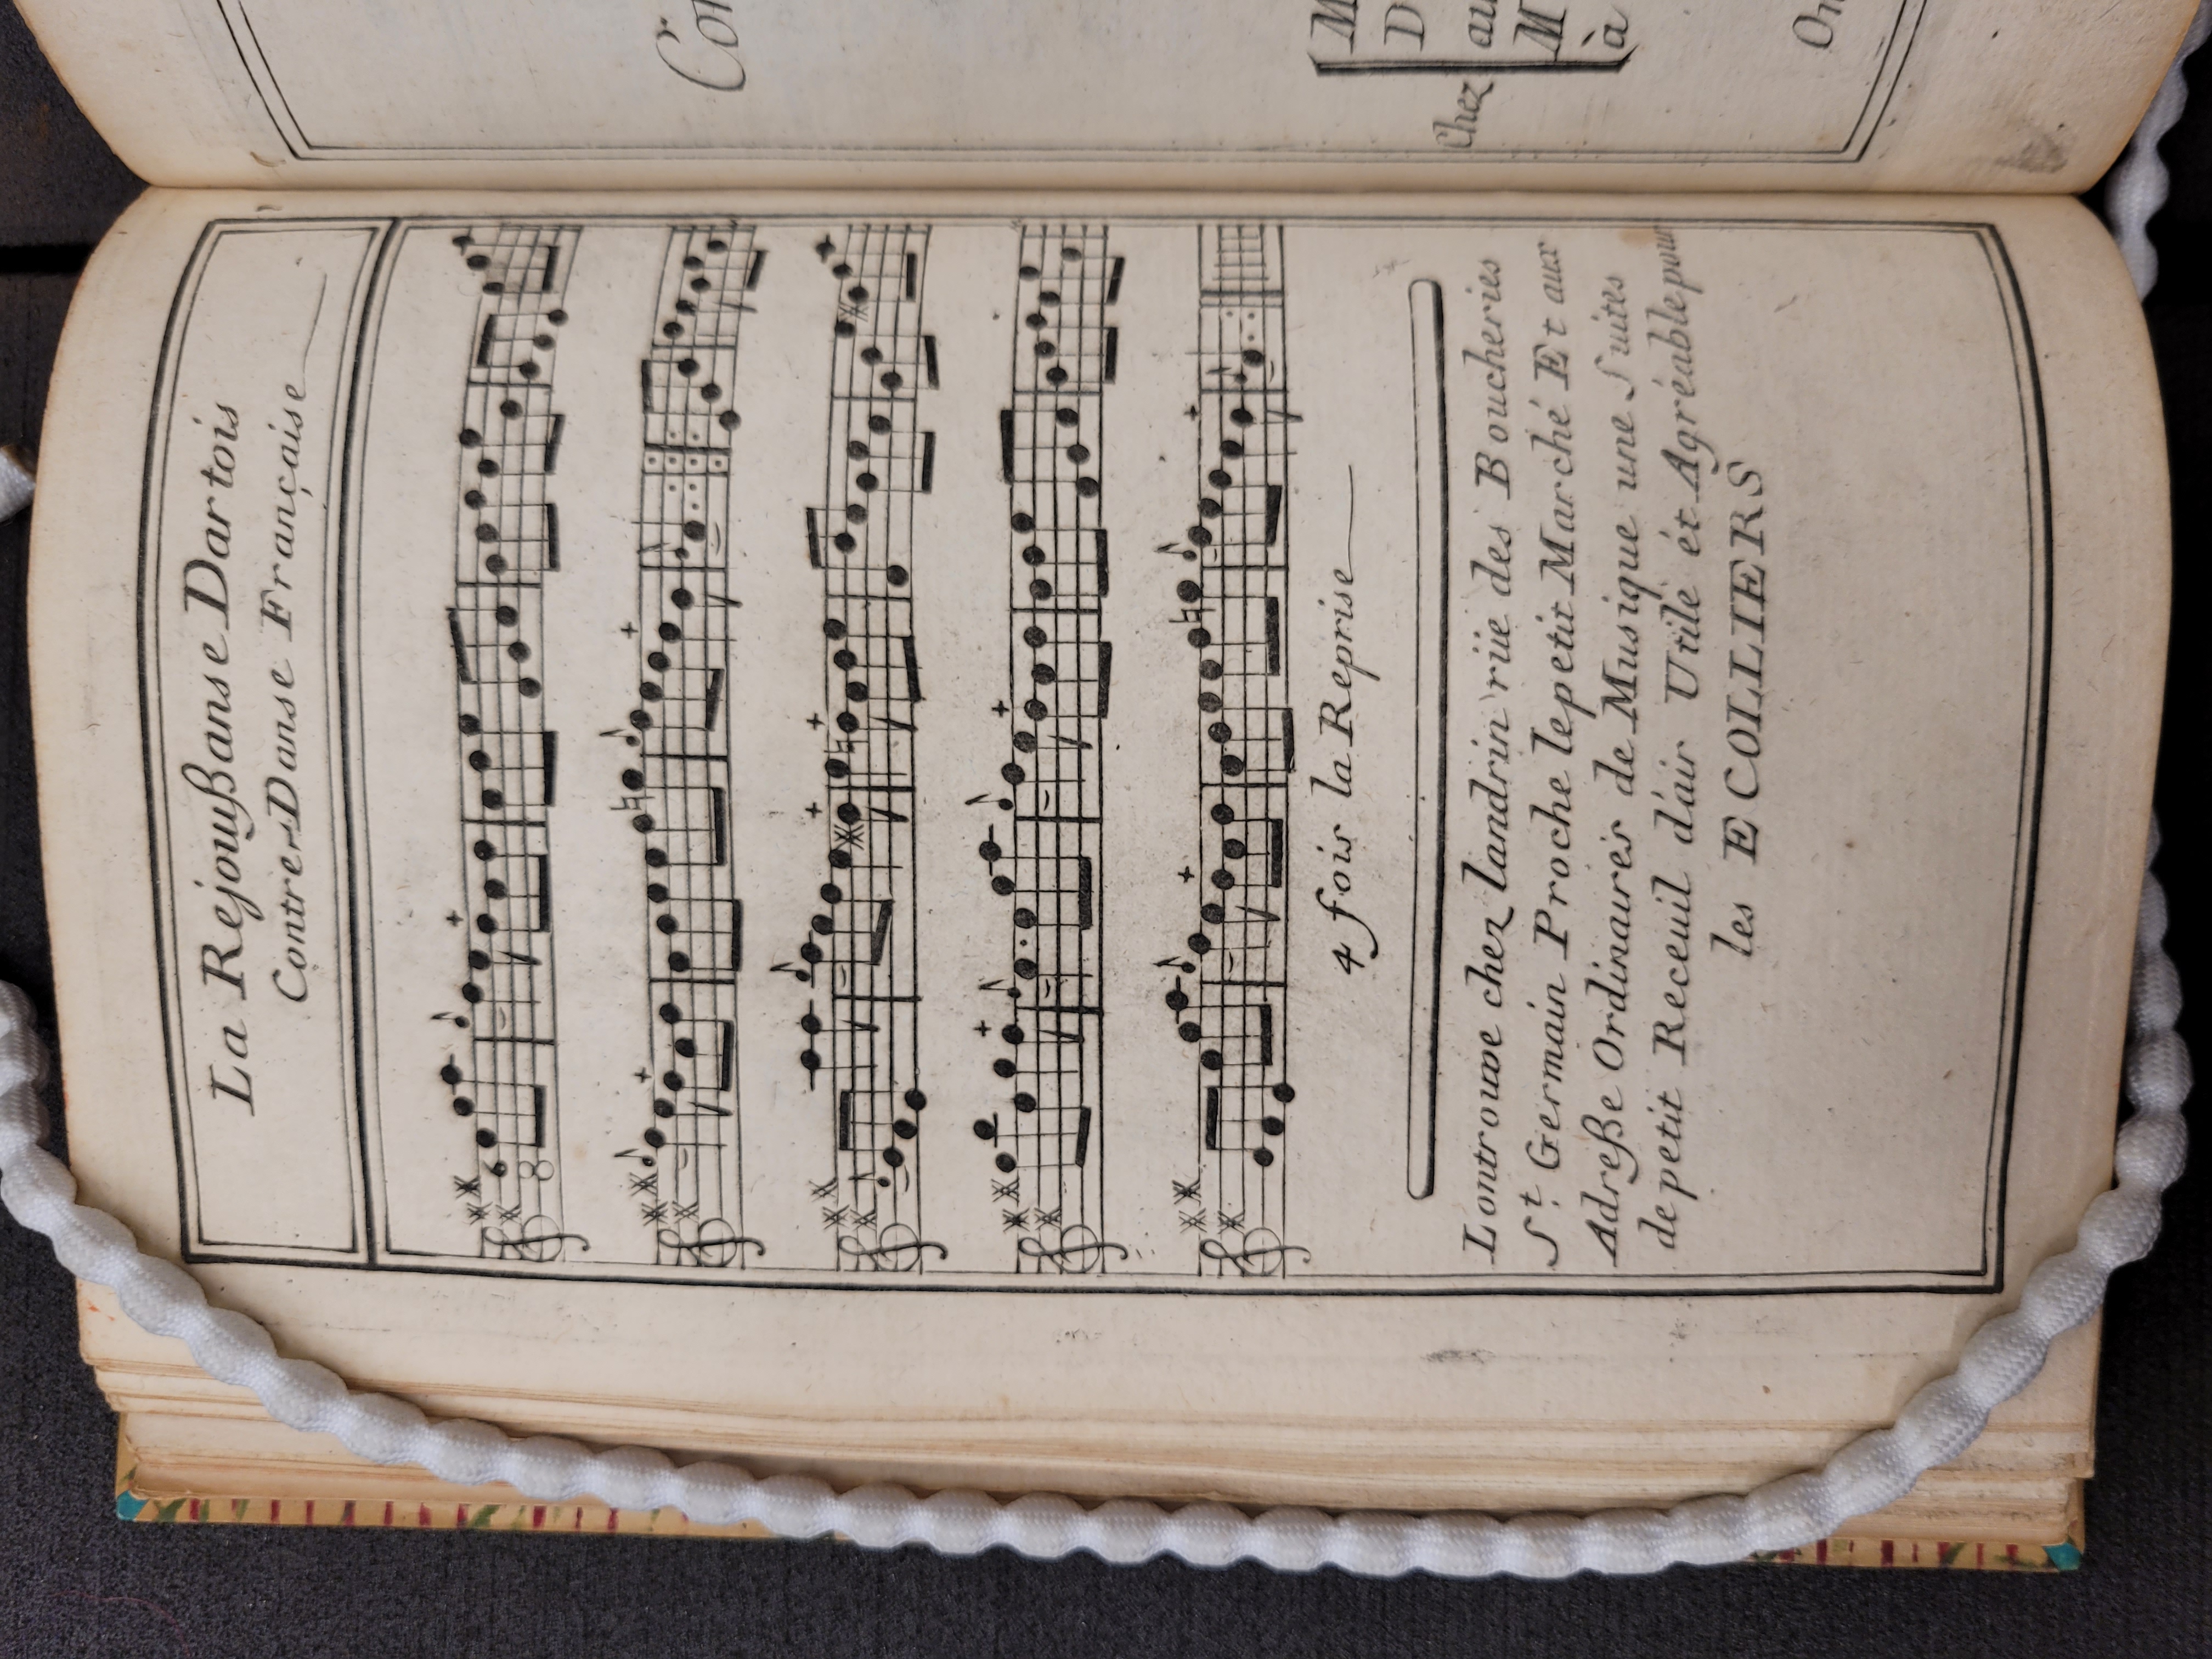 La Rejouißanse Dartois
Contre-Danse Française
6
8
4 fois la Reprise
Lontrouve chez landrin rüe des Boucheries
St. Germain Proche lepetit Marché Et aux
Adreße Ordinaires de Musique une Suites
de petit Receuil d'air Utile ét Agréable pour
les ECOLLIERS
Chez
M
D
au
M
à
On